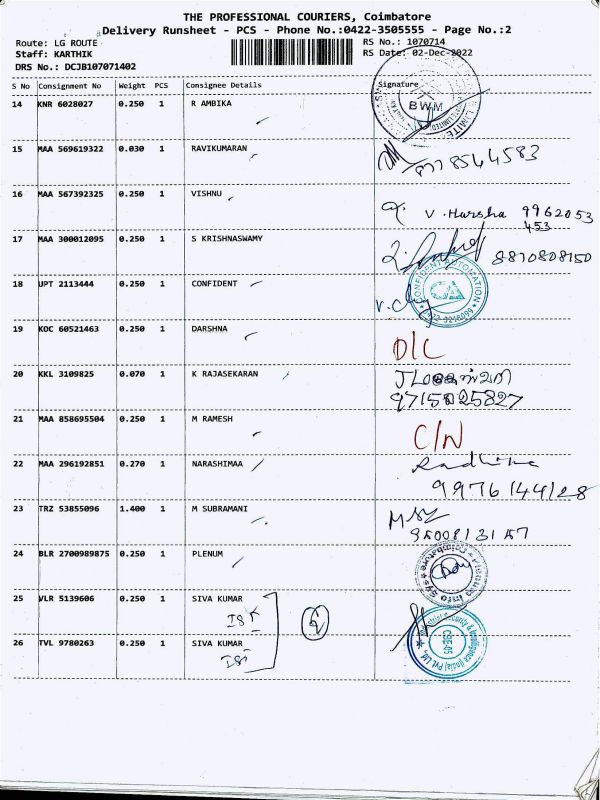 THE PROFESSIONAL COURIERS, Coimbatore
Delivery Runsheet - PCS - Phone No.:0422-3505555 - Page No.:2
Route: LG ROUTE RS No.: 1070714
Staff: KARTHIK RS Date: 02-Dec-2022
DRS No.: DCJB107071402
S No Consignment No Weight PCS Consignee Details Signature
14 KNR 6028027 0.250 1 R AMBIKA
BWM
15 MAA 569619322 0.030 1 RAVIKUMARAN
8778544583
16 MAA 567392325 0.250 1 VISHNU
V. Harsha 9962053
453
17 MAA 300012095 0.250 1 S KRISHNASWAMY
8870808150
18 UPT 2113444 0.250 1 CONFIDENT
CONFIDENT AUTOMATION
CA
19 KOC 60521463 0.250 1 DARSHNA
D/C
20 KKL 3109825 0.070 1 K RAJASEKARAN
9715025827
21 MAA 858695504 0.250 1 M RAMESH
C/N
22 MAA 296192851 0.270 1 NARASHIMAA
Radhika
9976144128
23 TRZ 53855096 1.400 1 M SUBRAMANI
9500813157
24 BLR 2700989875 0.250 1 PLENUM
25 VLR 5139606 0.250 1 SIVA KUMAR
26 TVL 9780263 0.250 1 SIVA KUMAR
CBE-05